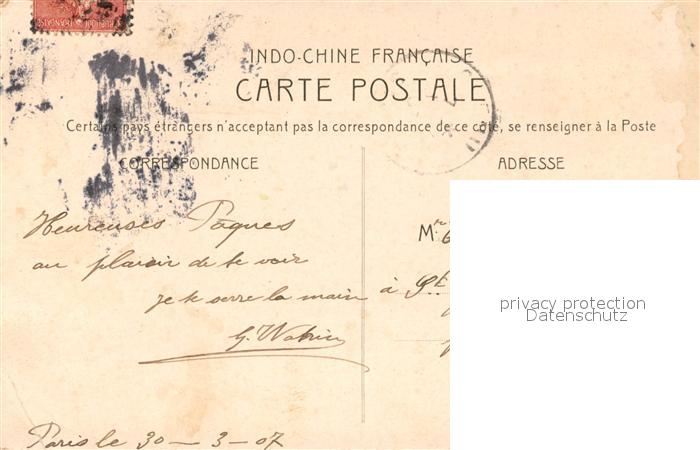 INDO-CHINE FRANÇAISE
CARTE POSTALE
Certains pays étrangers n'acceptant pas la correspondance de ce côté, se renseigner à la Poste
CORRESPONDANCE
ADRESSE
Heureuses Pâques
au plaisir de te voir
je te serre la main
Paris le 30 - 3 - 07
M.
à St
privacy protection
Datenschutz